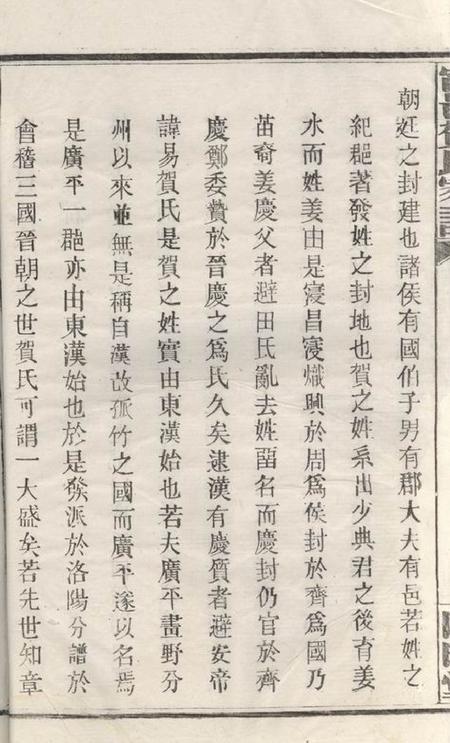 朝廷之封建也諸侯有國伯子男有郡大夫有邑若姓之
紀郡著發姓之封地也賀之姓系出少典君之後育姜
水而姓姜由是寖昌寖熾興於周爲侯封於齊爲國乃
苗裔姜慶父者避田氏亂去姓畱名而慶封仍官於齊
慶鄭委贄於晉慶之爲氏久矣逮漢有慶質者避安帝
諱易賀氏是賀之姓實由東漢始也若夫廣平畫野分
州以來並無是稱自漢改孤竹之國而廣平遂以名焉
是廣平一郡亦由東漢始也於是發派於洛陽分譜於
會稽三國晉朝之世賀氏可謂一大盛矣若先世知章